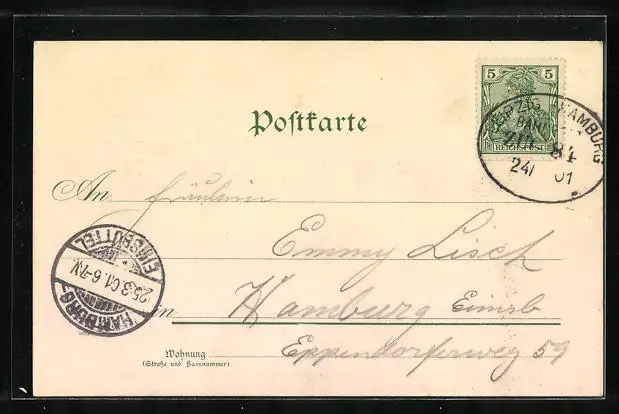 Postkarte
5 5
REICHSPOST
LEIPZIG HAMBURG
BAHN
ZUG 84
24/ 01
An Fräulein
Emmy Lisch
in Hamburg Eimsb
Eppendorferweg 59
Wohnung
(Straße und Hausnummer)
HAMBURG-
EIMSBÜTTEL
25.3.01.6-7N.